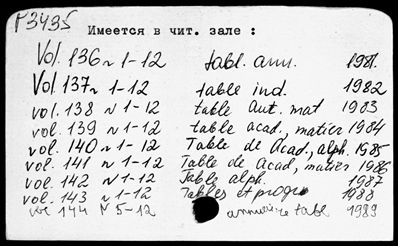 P3435
Имеется в чит. зале :
Vol. 136 N 1-12 tabl. ann. 1981.
Vol. 137 N 1-12 table ind. 1982
vol. 138 N 1-12 table Aut. mat 1983
vol. 139 N 1-12 table acad., matier 1984
vol. 140 N 1-12 Table de Acad., alph. 1985
vol. 141 N 1-12 Table de Acad, matier 1986
vol. 142 N 1-12 Table alph. 1987
vol. 143 N 1-12 Tables et progr 1988
vol 144 N 5-12 table 1989